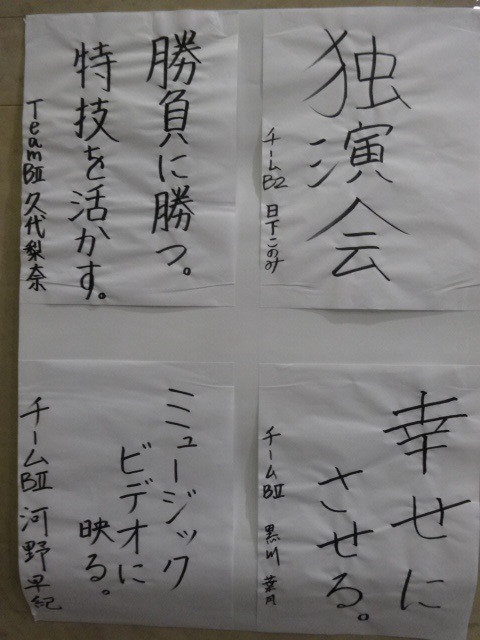 独演会
チームB2 日下このみ
勝負に勝つ。
特技を活かす。
TeamBⅡ 久代梨奈
幸せに
させる。
チームBⅡ 黒川 葉月
ミュージック
ビデオに
映る。
チームBⅡ 河野早紀